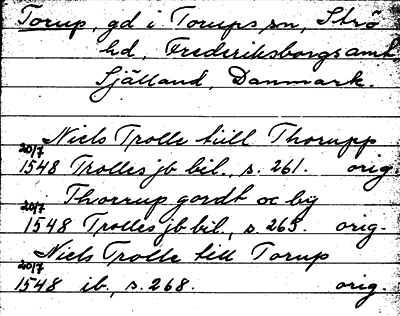 Torup, gd i Torups sn, Strö
hd, Frederiksborgs amt
Själland, Danmark.
Niels Trolle tüll Thorupp
20/7
1548 Trolles jb bil., s. 261. orig.
Thorrup gordt oc by
20/7
1548 Trolles jb bil., s. 265. orig.
Niels Trolle till Torup
20/7
1548 ib., s. 268. orig.